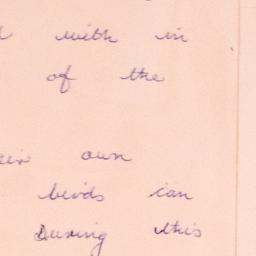 with in
of the
own
birds can
During this